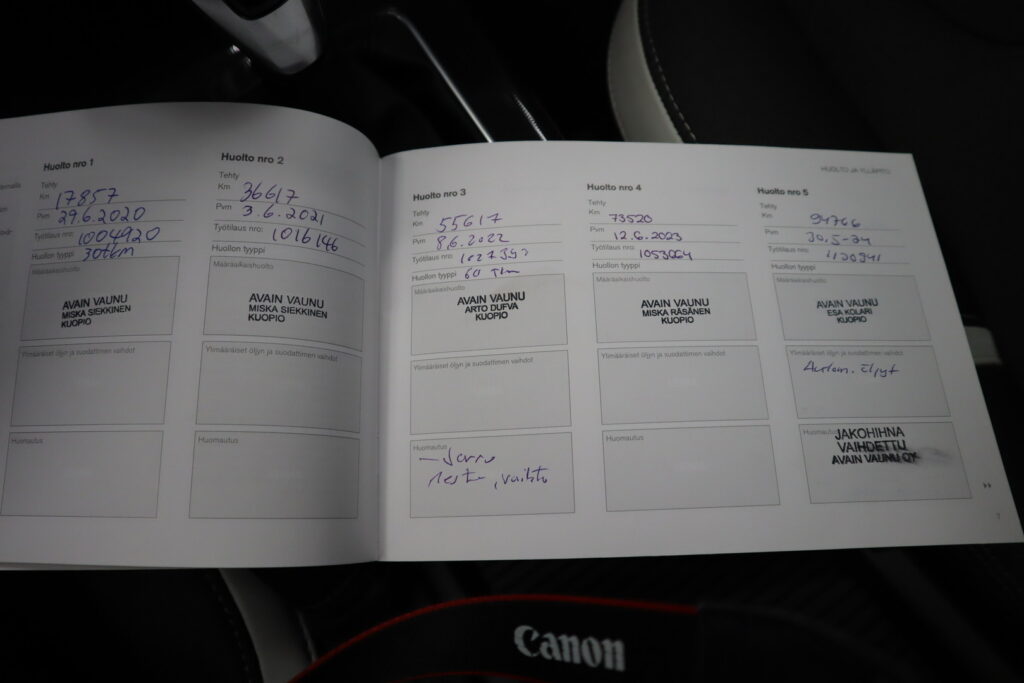 Huolto nro 1
Tehty
Km 17857
Pvm 29.6.2020
Työtilaus nro: 1004920
Huollon tyyppi 30tkm
Määräaikaishuolto
AVAIN VAUNU
MISKA SIEKKINEN
KUOPIO
Ylimääräiset öljyn ja suodattimen vaihdot
Huomautus
Huolto nro 2
Tehty
Km 36617
Pvm 3.6.2021
Työtilaus nro: 1016146
Huollon tyyppi
Määräaikaishuolto
AVAIN VAUNU
MISKA SIEKKINEN
KUOPIO
Ylimääräiset öljyn ja suodattimen vaihdot
Huomautus
HUOLTO JA YLLÄPITO
Huolto nro 3
Tehty
Km 55617
Pvm 8.6.2022
Työtilaus nro:
Huollon tyyppi 60 Tkm
Määräaikaishuolto
AVAIN VAUNU
ARTO DUFVA
KUOPIO
Ylimääräiset öljyn ja suodattimen vaihdot
Huomautus
– Jarru
neste, vaihto
Huolto nro 4
Tehty
Km 73520
Pvm 12.6.2023
Työtilaus nro: 1053064
Huollon tyyppi
Määräaikaishuolto
AVAIN VAUNU
MISKA RÄSÄNEN
KUOPIO
Ylimääräiset öljyn ja suodattimen vaihdot
Huomautus
Huolto nro 5
Tehty
Km 94766
Pvm 30.5-24
Työtilaus nro: 1120341
Huollon tyyppi
Määräaikaishuolto
AVAIN VAUNU
ESA KOLARI
KUOPIO
Ylimääräiset öljyn ja suodattimen vaihdot
Autom. öljyt
Huomautus
JAKOHIHNA
VAIHDETTU
AVAIN VAUNU OY
7
Canon